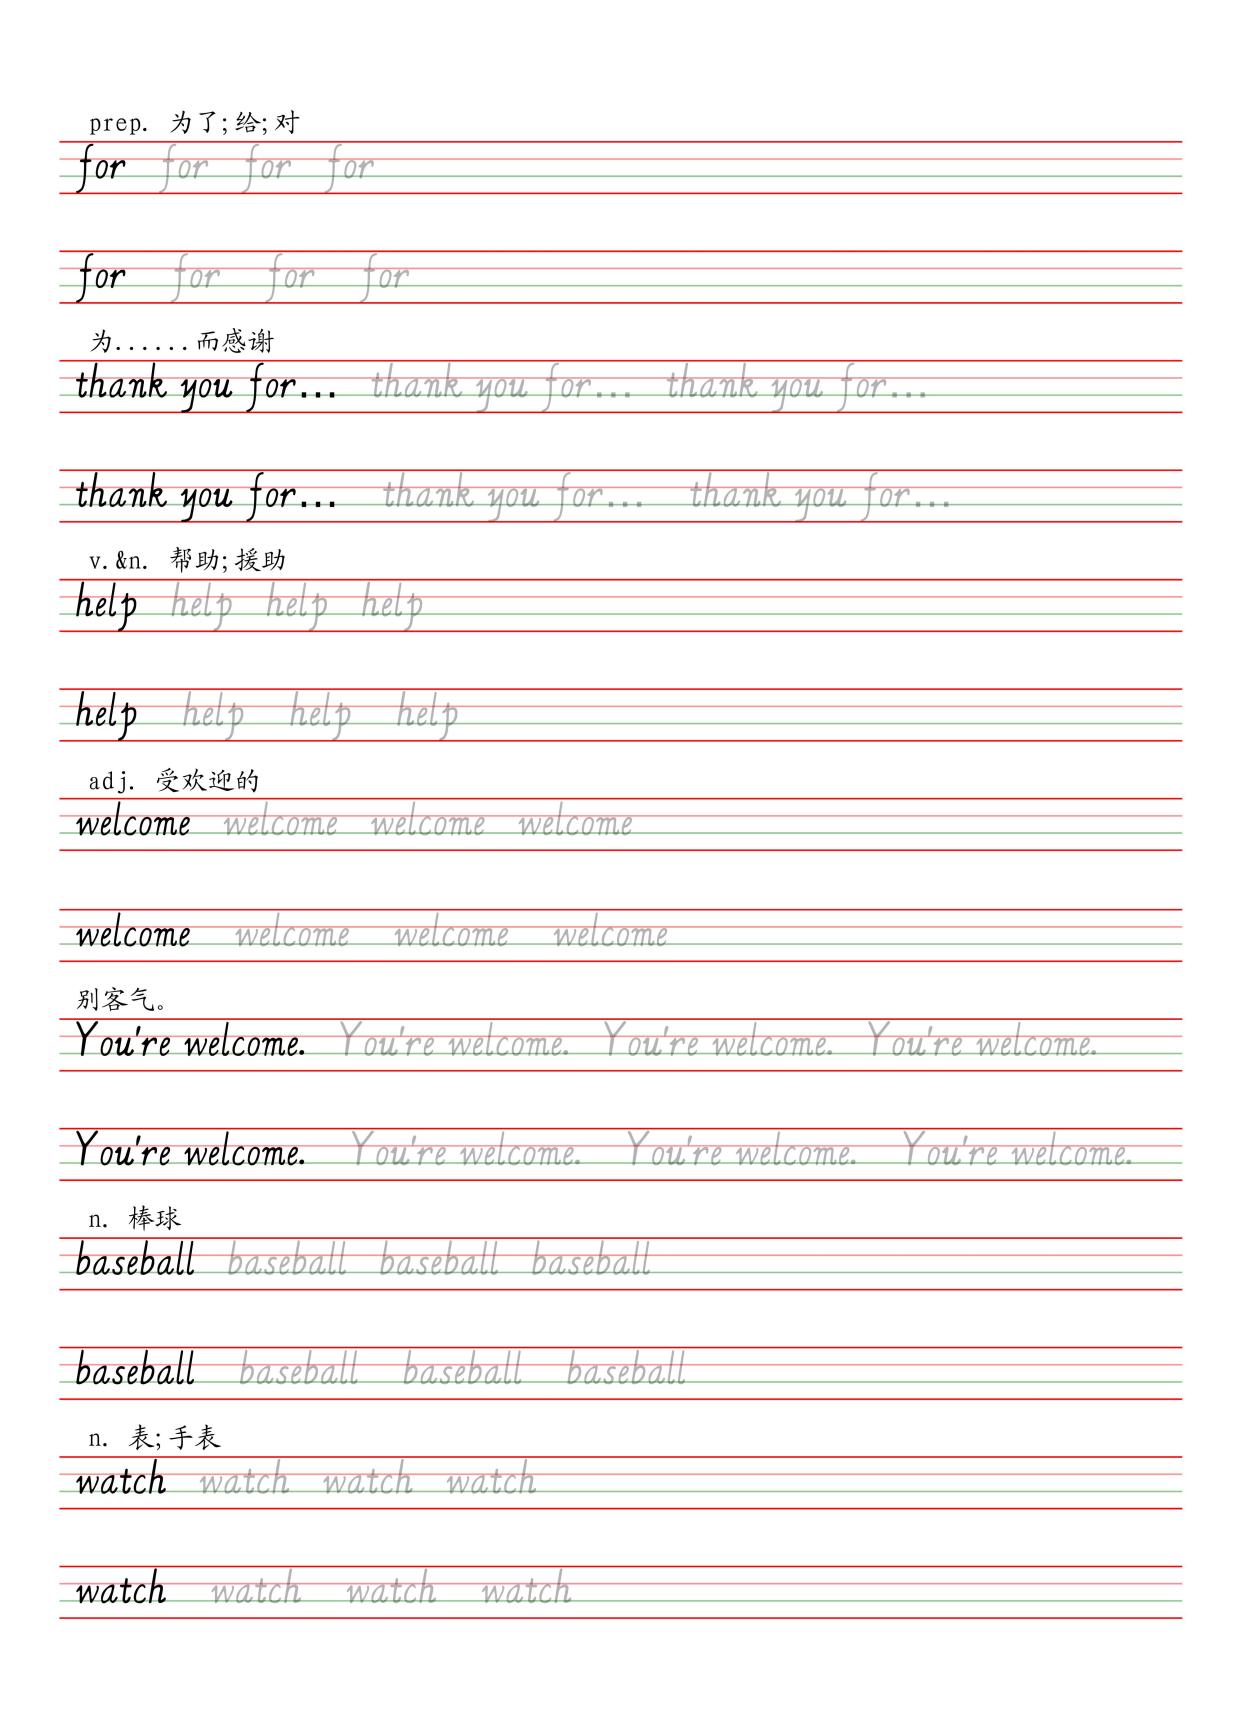 prep. 为了;给;对
for for for for
for for for for
为......而感谢
thank you for... thank you for... thank you for...
thank you for... thank you for... thank you for...
v.&n. 帮助;援助
help help help help
help help help help
adj. 受欢迎的
welcome welcome welcome welcome
welcome welcome welcome welcome
别客气。
You're welcome. You're welcome. You're welcome. You're welcome.
You're welcome. You're welcome. You're welcome. You're welcome.
n. 棒球
baseball baseball baseball baseball
baseball baseball baseball baseball
n. 表;手表
watch watch watch watch
watch watch watch watch